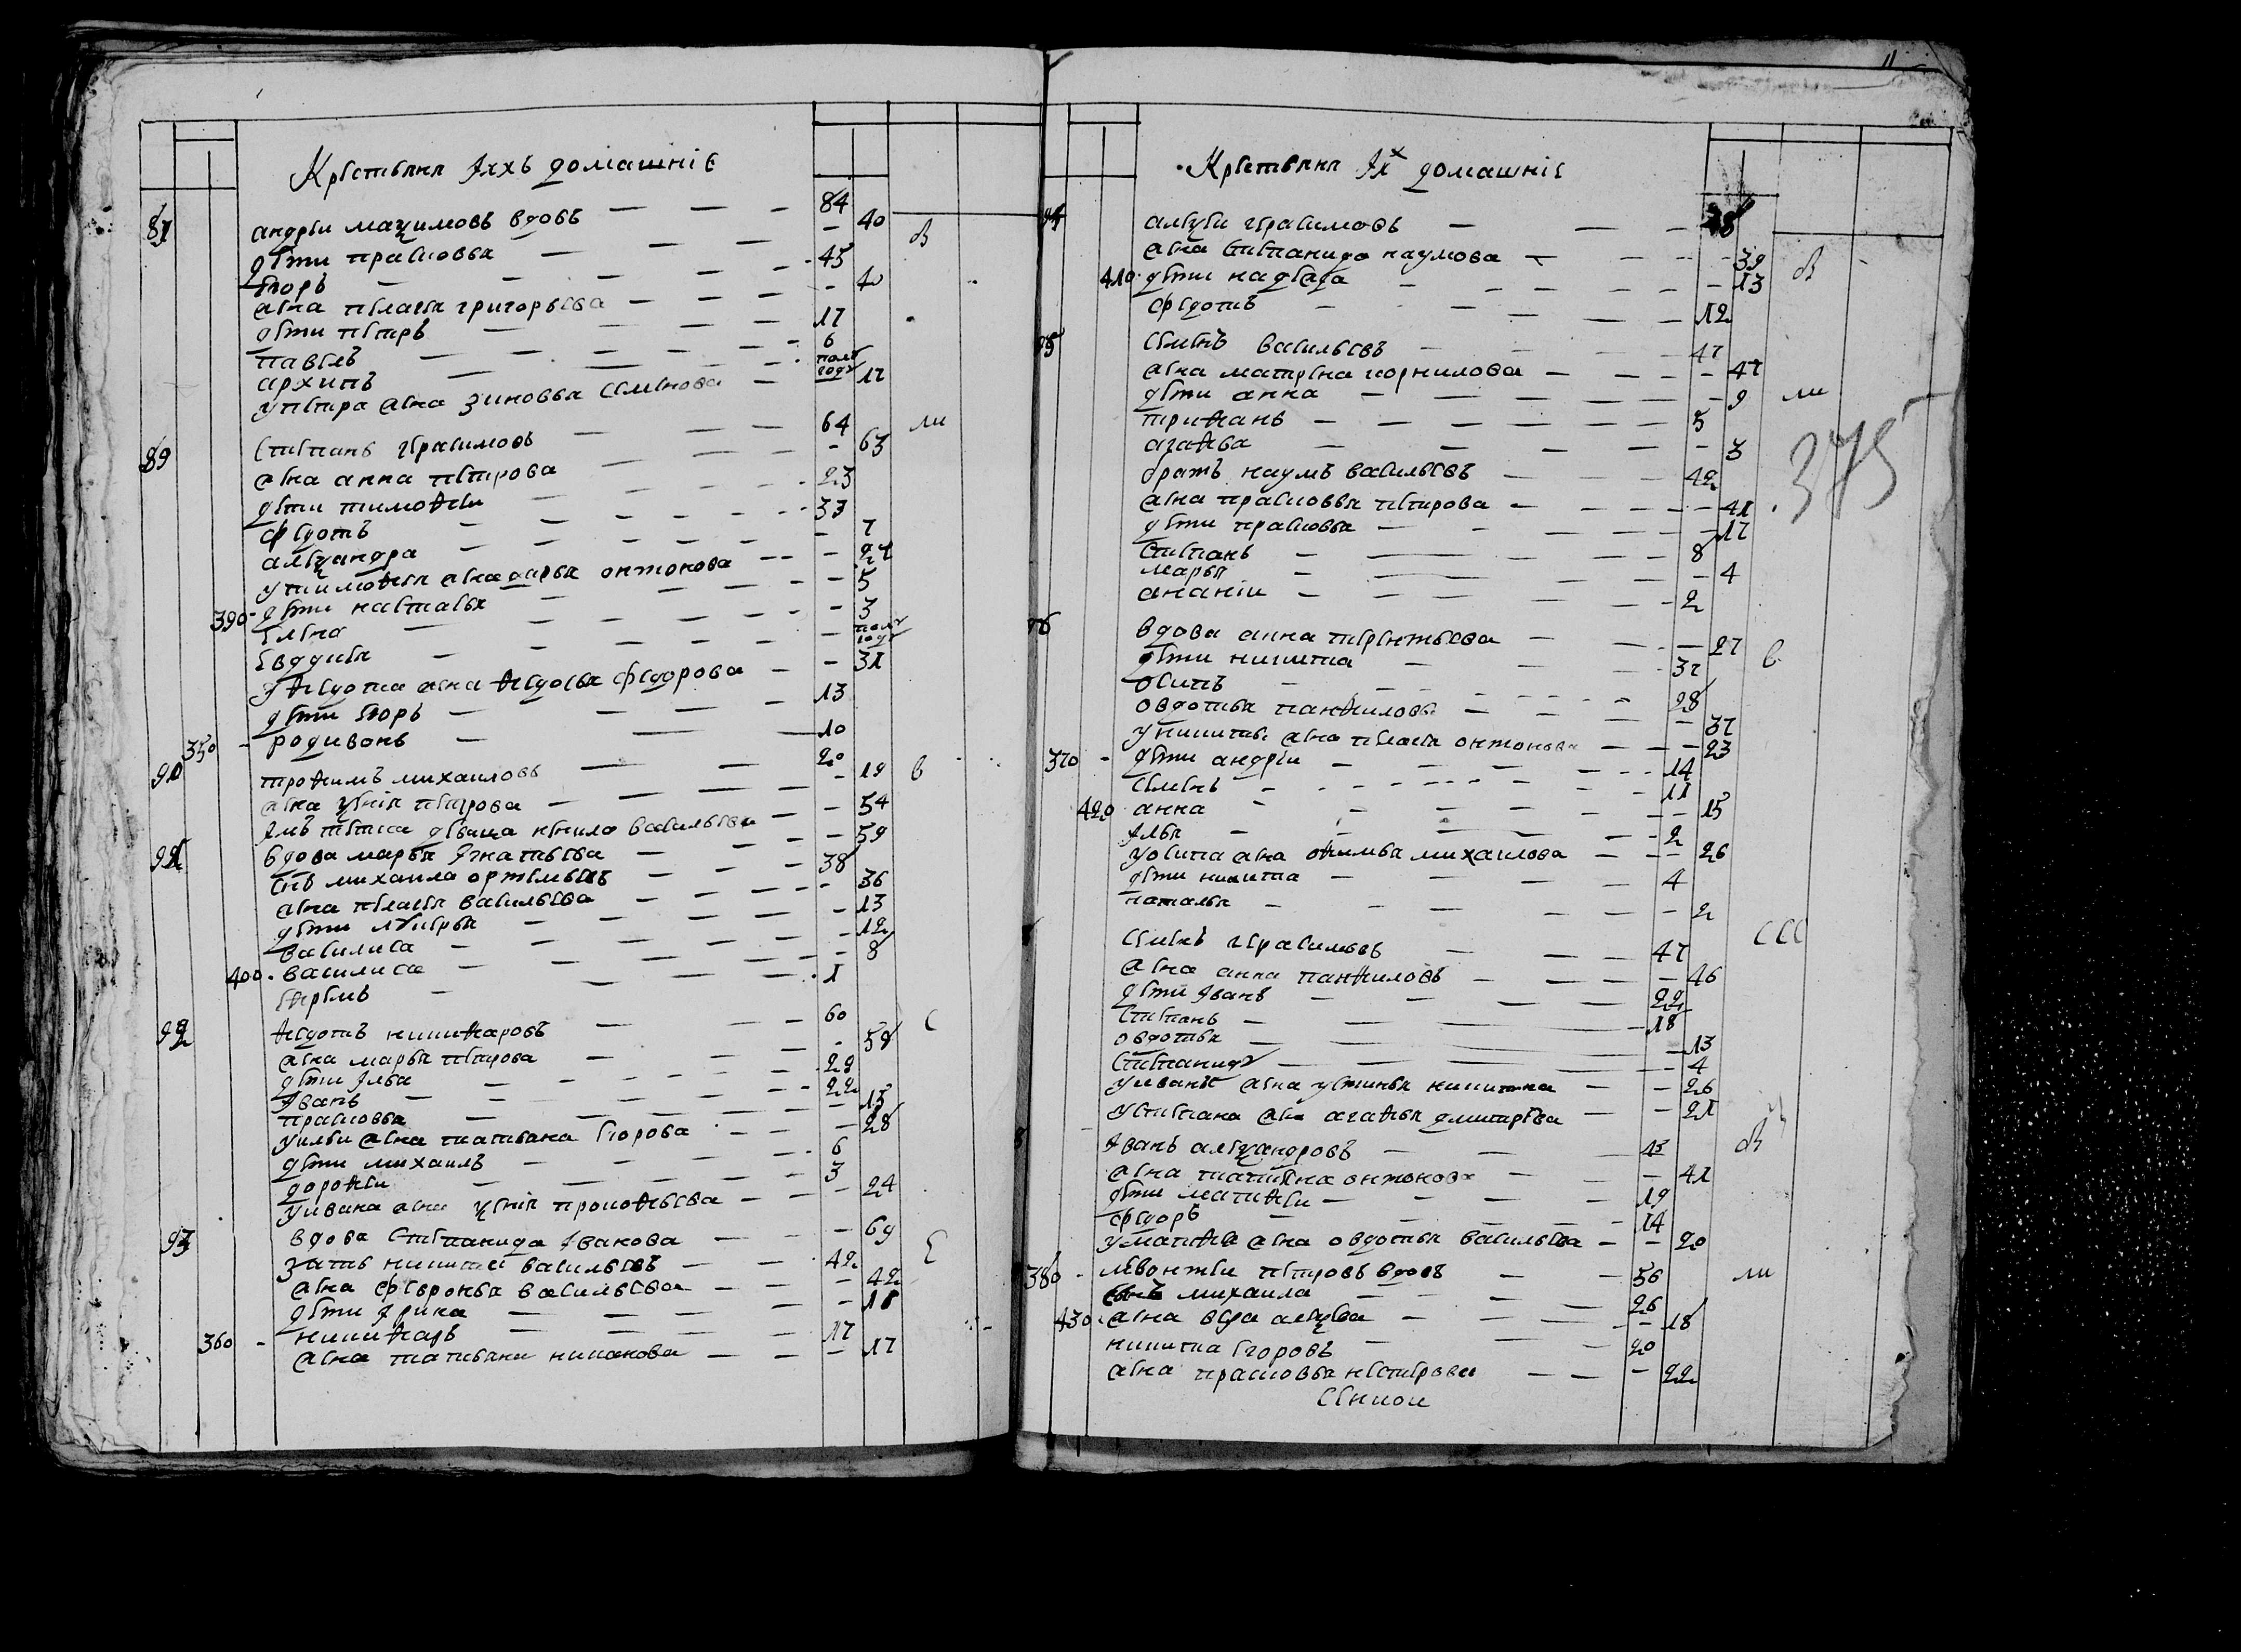 11
Крестьяня Ихъ домашние
87 андреи мазимовъ вдовъ — — — 84
дети прасковья — — — — 40 в
Егоръ — — — — 45
жена пелагея григорьева — — — — 40
дети петръ — — — — 17
павелъ — — — — 6
архипъ — — — полъ году
у петра жена зиновья семенова — 17
89 степанъ герасимовъ — — — 64 ли
жена анна петрова — — — — 63
дети тимоѳеи — — — — 23
федотъ — — — — 33
алеѯандра — — — — 7
у тимоѳея жена дарья онтонова — — — 27
390 - дети настасья — — — — 5
Елена — — — — 3
Евдокея — — — — полъ году
у ѳедота жена ѳедосья федорова — — — 31
дети Егоръ — — — — 13
350 - родивонъ — — 10
90 троѳимъ михаиловъ — — 20
жена ѯения петрова — — — — 19 в
имъ тетка девица ненила васильева — — 54
91 вдова марья Игнатьева — — — 59
снъ михаила ортемьевъ — — — 38
жена пелагея васильева — — — — 36
дети лукерья — — — — 13
василиса — — — — 12
400 - василиса — — — — 8
Еѳремъ — — — 1
92 ѳедотъ никиѳаровъ — — — 60 с
жена марья петрова — — — 58
дети Илья — — — — 29
Иванъ — — — — 22
прасковья — — — — 15
у ильи жена татьяна Егорова — — — 28
дети михаилъ — — — — 6
дороѳеи — — — — 3
у ивана жена ѯения прокоѳьева — — — 24
93 вдова степанида Иванова — — — 69
зять никита васильевъ — — — 42 Е
жена февронья васильева — — — 42
дети Ирина — — — — 18
360 - никиѳаръ — — — — 17
жена татьяна никонова — — — 17
Крестьяня Их домашние
94 алеѯеи герасимовъ — — — 38
жена степанида наумова — — — 39 в
410 - дети надежда — — — — 13
федотъ — — — — 12
95 семенъ васильевъ — — — 47
жена матрена корнилова — — — — 47
дети анна — — — — 9 ли
триѳанъ — — — — 5
агаѳья — — — — 3
братъ наумъ васильевъ — — — 42
жена прасковья петрова — — — — 41
дети прасковья — — — — 17
степанъ — — — — 8
марья — — — — 4
ананiи — — — — 2
375
96 вдова анна терентьева — — — 27 в
дети никита — — — 37
осипъ — — — 28
овдотья панѳилова — — — — 37
у никиты жена пелагея онтонова — — — 23
370 - дети андреи — — — — 14
семенъ — — — — 11
420 анна — — — — 15
Илья — — — — 2
у осипа жена оѳимья михаилова — — — 26
дети никита — — — — 4
наталья — — — — 2
семенъ герасимовъ — — — 47 ССС
жена анна панѳиловъ — — — — 46
дети Иванъ — — — — 22
степанъ — — — 18
овдотья — — — 13
степанида — — — 4
у ивана жена устинья никитина — — 26
у степана жена агаѳья дмитрева — — 21
Иванъ алеѯандровъ — — — 43 в
жена татьяна онтонова — — — 41
дети матѳеи — — — — 19
федоръ — — — — 14
у матѳеа жена овдотья васильева — — 20
380 - левонтеи петровъ вдовъ — — 56 ли
сынъ михаила — — — — 26
430 - жена вера алеѯева — — — — 18
никита Егоровъ — — 20
жена прасковья нестерова — — — 22
Сенкои